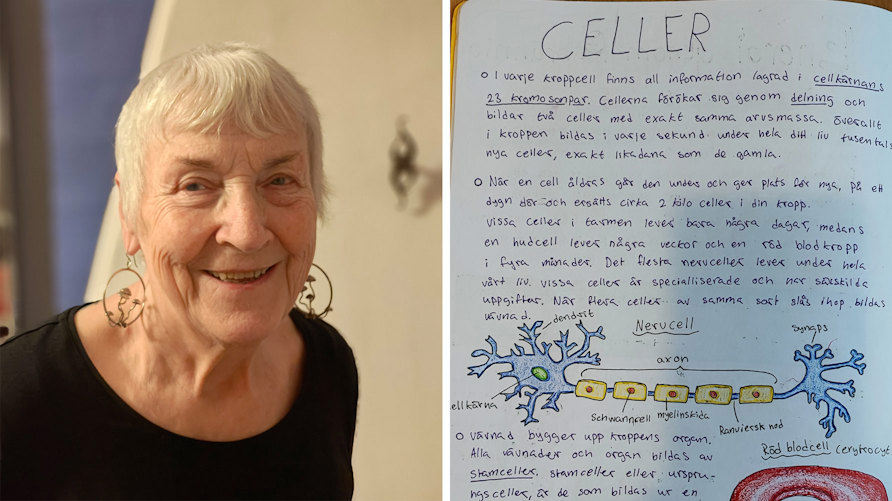 CELLER
I varje kroppcell finns all information lagrad i cellkärnans
23 kromosonpar. Cellerna förökar sig genom delning och
bildar två celler med exakt samma arvsmassa. Överallt
i kroppen bildas i varje sekund under hela ditt liv tusentals
nya celler, exakt likadana som de gamla.
När en cell åldras går den under och ger plats för nya, på ett
dygn dör och ersätts cirka 2 kilo celler i din kropp.
Vissa celler i tarmen lever bara några dagar, medans
en hudcell lever några veckor och en röd blodkropp
i fyra månader. Det flesta nervceller lever under hela
vårt liv. Vissa celler är specialliserade och har särskilda
uppgifter. När flera celler av samma sort slås ihop bildas
vävnad.
Nervcell
dendrit
synaps
axon
ellkärna
Schwanncell
myelinskida
Ranviersk nod
Vävnad bygger upp kroppens organ.
Alla vävnader och organ bildas av
stamceller. Stamceller eller urspru-
ngsceller, är de som bildas ur en
Röd blodcell